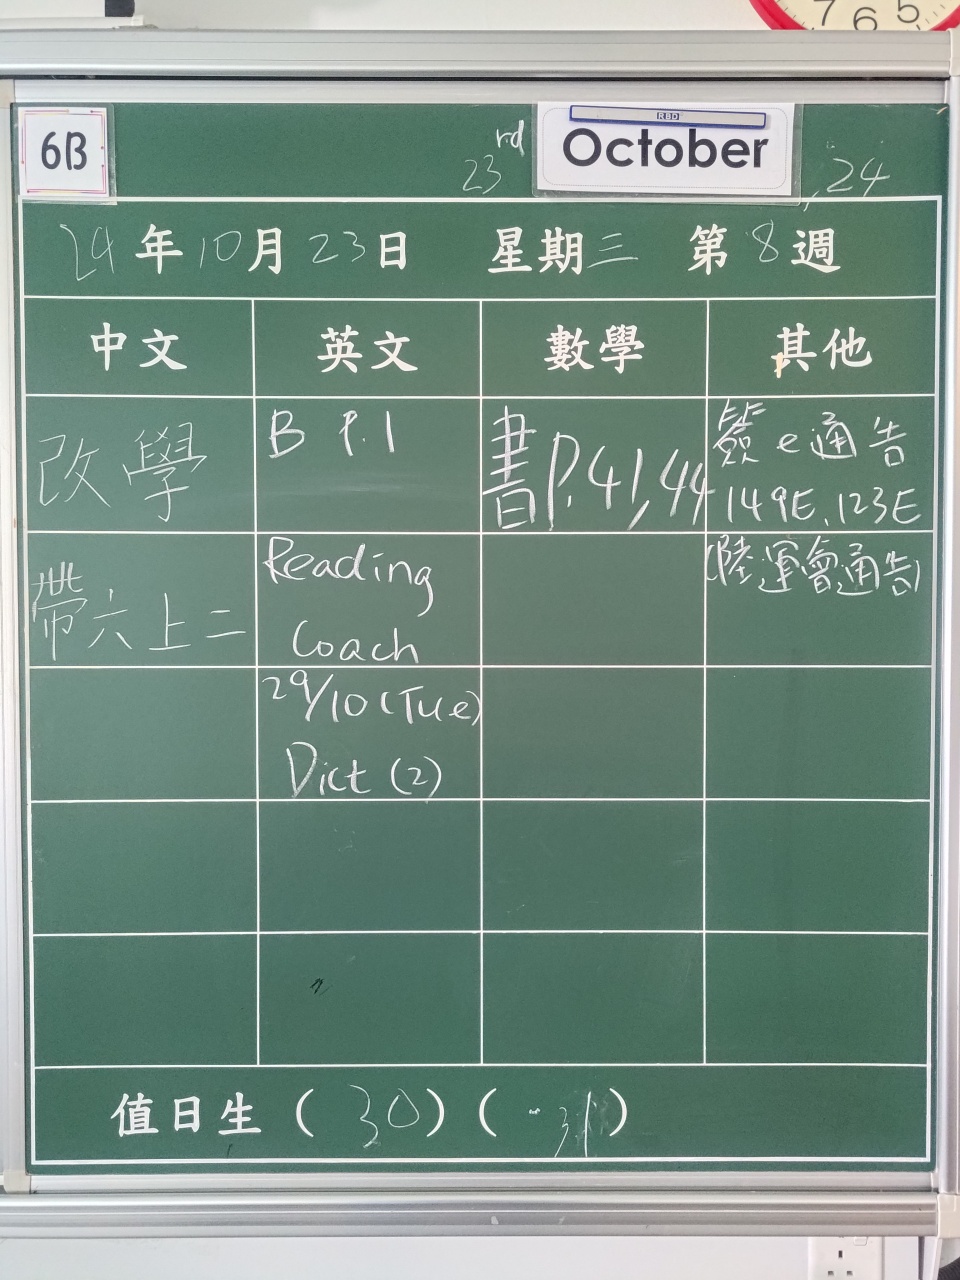 7 6 5
6B
RBD
23rd October, 24
24年10月23日 星期三 第8週
中文 英文 數學 其他
改學 B P.1 書P.41,44 簽e通告
149E、123E
帶六上二 Reading
Coach (陸運會通告)
29/10(Tue)
Dict (2)
值日生(30)(31)